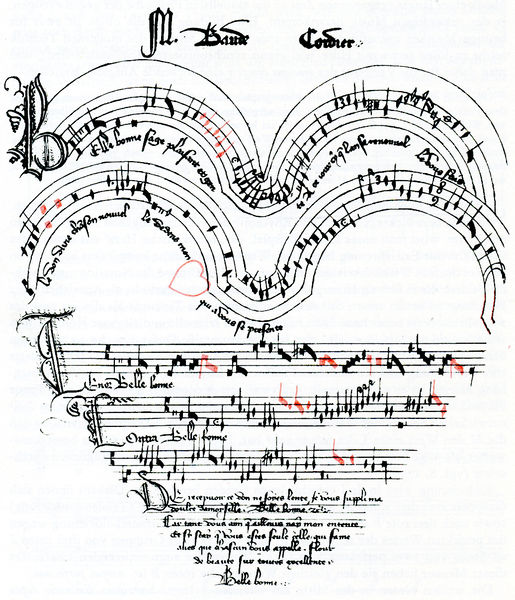 M. Baude Cordier
Belle bonne sage plaisant et gen
te A ce jour cy q lan se renouvel
le Vous fais
le don dune chanson nouvel
le dedens mon
qui a vous se presente
Tenor Belle bonne
Contra Belle bonne
De recepvoir ce don ne soyes lente Je vous suppli ma
doulce damoyselle. Belle bonne. zc.
Car tant vous aim q ailleurs nay mon entente.
Et si scay q vous estes seule celle qui fame
aves que chascun vous appelle. flour
de beaute sur toutes excellente.
Belle bonne.